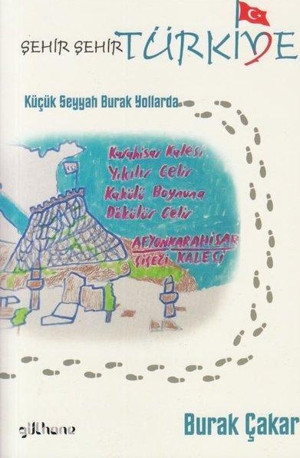 ŞEHİR ŞEHİR TÜRKİYE
Küçük Seyyah Burak Yollarda...
Karahisar Kalesi
Yıkılır Gelir
Kakülü Boynuna
Dökülür Gelir
AFYONKARAHİSAR
KALESİ
gülhane
Burak Çakar